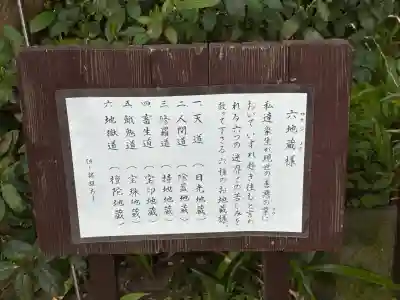 六地蔵様
私達衆生が現世の善悪の業に
おいて、いずれ趣き住むと言わ
れる六つの迷界での苦しみを
救って下さる六種のお地蔵様
一 天道 （日光地蔵）
二 人間道 （除蓋地蔵）
三 修羅道 （持地地蔵）
四 畜生道 （宝印地蔵）
五 餓鬼道 （宝珠地蔵）
六 地獄道 （檀陀地蔵）